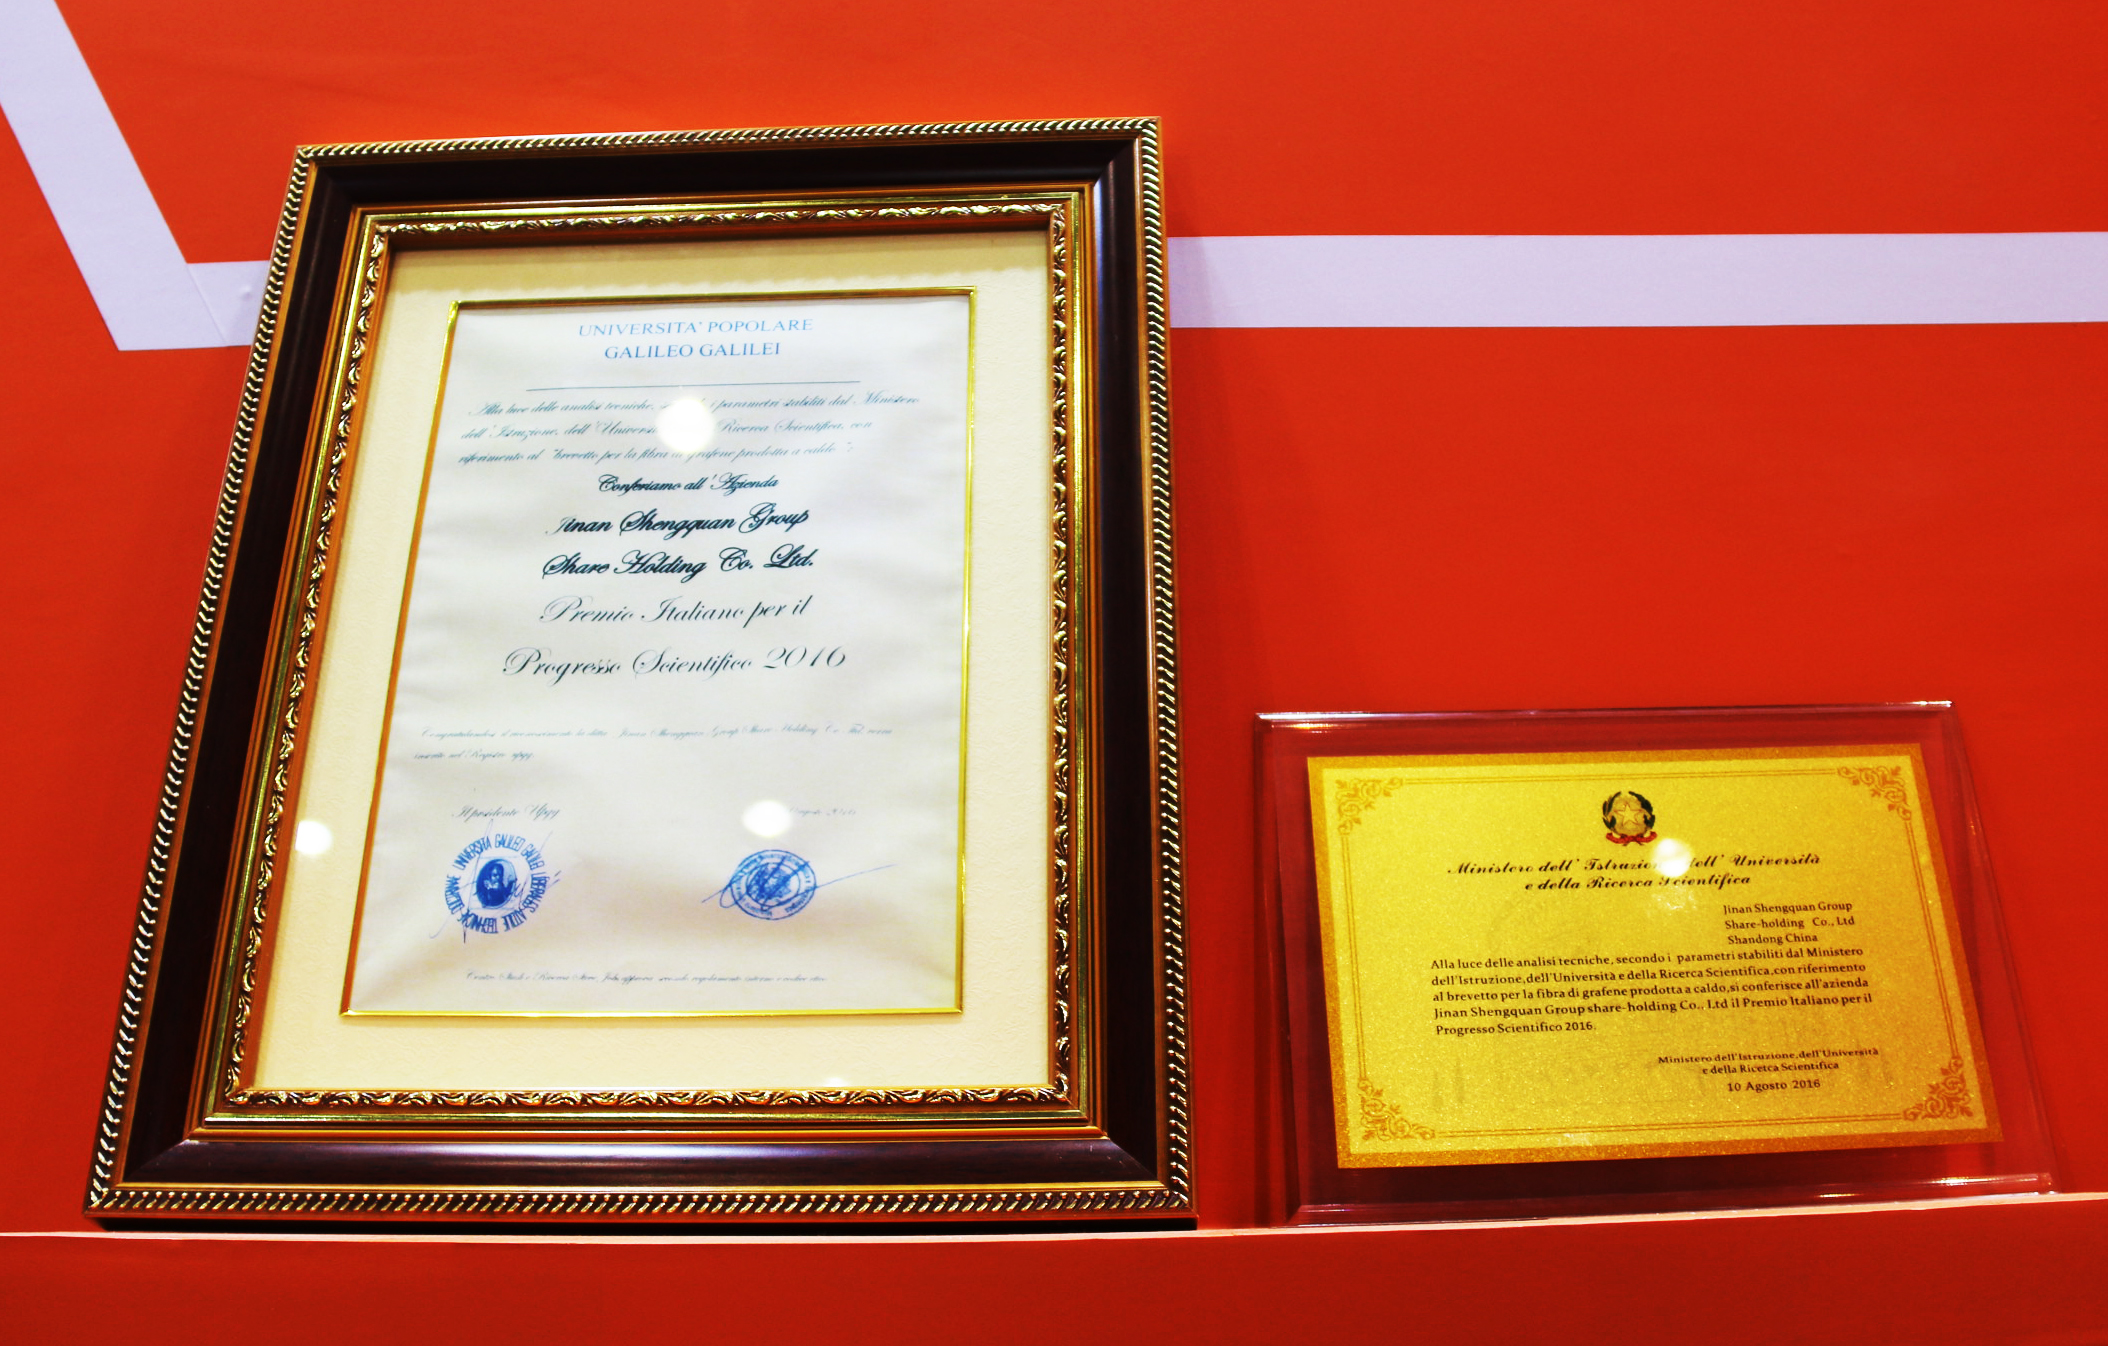 UNIVERSITA' POPOLARE
GALILEO GALILEI
Alla luce delle analisi tecniche, i parametri stabiliti dal Ministero
dell'Istruzione, dell'Universi Ricerca Scientifica, con
riferimento al "brevetto per la fibra di grafene prodotta a caldo";
Conferiamo all'Azienda
Jinan Shengquan Group
Share Holding Co. Ltd.
Premio Italiano per il
Progresso Scientifico 2016
Jinan Shengquan Group Share Holding Co
inserito nel Registro upgg.
Il presidente Upgg
UNIVERSITA GALILEO GALILEI
Ministero dell' Istruzio dell' Università
e della Ricerca Scientifica
Jinan Shengquan Group
Share-holding Co., Ltd
Shandong China
Alla luce delle analisi tecniche, secondo i parametri stabiliti dal Ministero
dell'Istruzione,dell'Università e della Ricerca Scientifica,con riferimento
al brevetto per la fibra di grafene prodotta a caldo,si conferisce all'azienda
Jinan Shengquan Group share-holding Co., Ltd il Premio Italiano per il
Progresso Scientifico 2016.
Ministero dell'Istruzione,dell'Università
e della Ricetca Scientifica
10 Agosto 2016